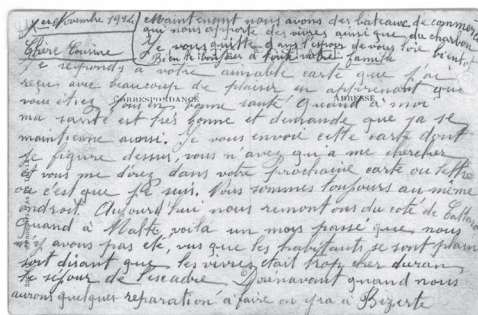 1er Novembre 1914
Maintenant nous avons des bateaux de commerce
qui nous apporte des vivres ainsi que du charbon
Je vous quitte dans l'espoir de vous voir bientôt
Bien le bonjour à toute votre famille
Chère Cousine
Je répond à votre aimable carte que j'ai
reçu avec beaucoup de plaisir en apprenant que
vous étiez tous en bonne santé Quand à moi
CORRESPONDANCE
ADRESSE
ma santé est très bonne et demande que ça se
maintienne aussi. Je vous envoie cette carte dont
je figure dessus, vous n'avez qu'à me chercher
et vous me direz dans votre prochaine carte ou lettre
où c'est que je suis. Nous sommes toujours au même
endroit. Aujourd'hui nous remontons du coté de Cattaro
Quand à Malte, voila un mois passé que nous
n'y avons pas été, vus que les habitants se sont plain
soit disant que les vivres était trop cher duran
le séjour de l'escadre Dorénavant quand nous
aurons quelques réparation à faire on ira à Bizerte